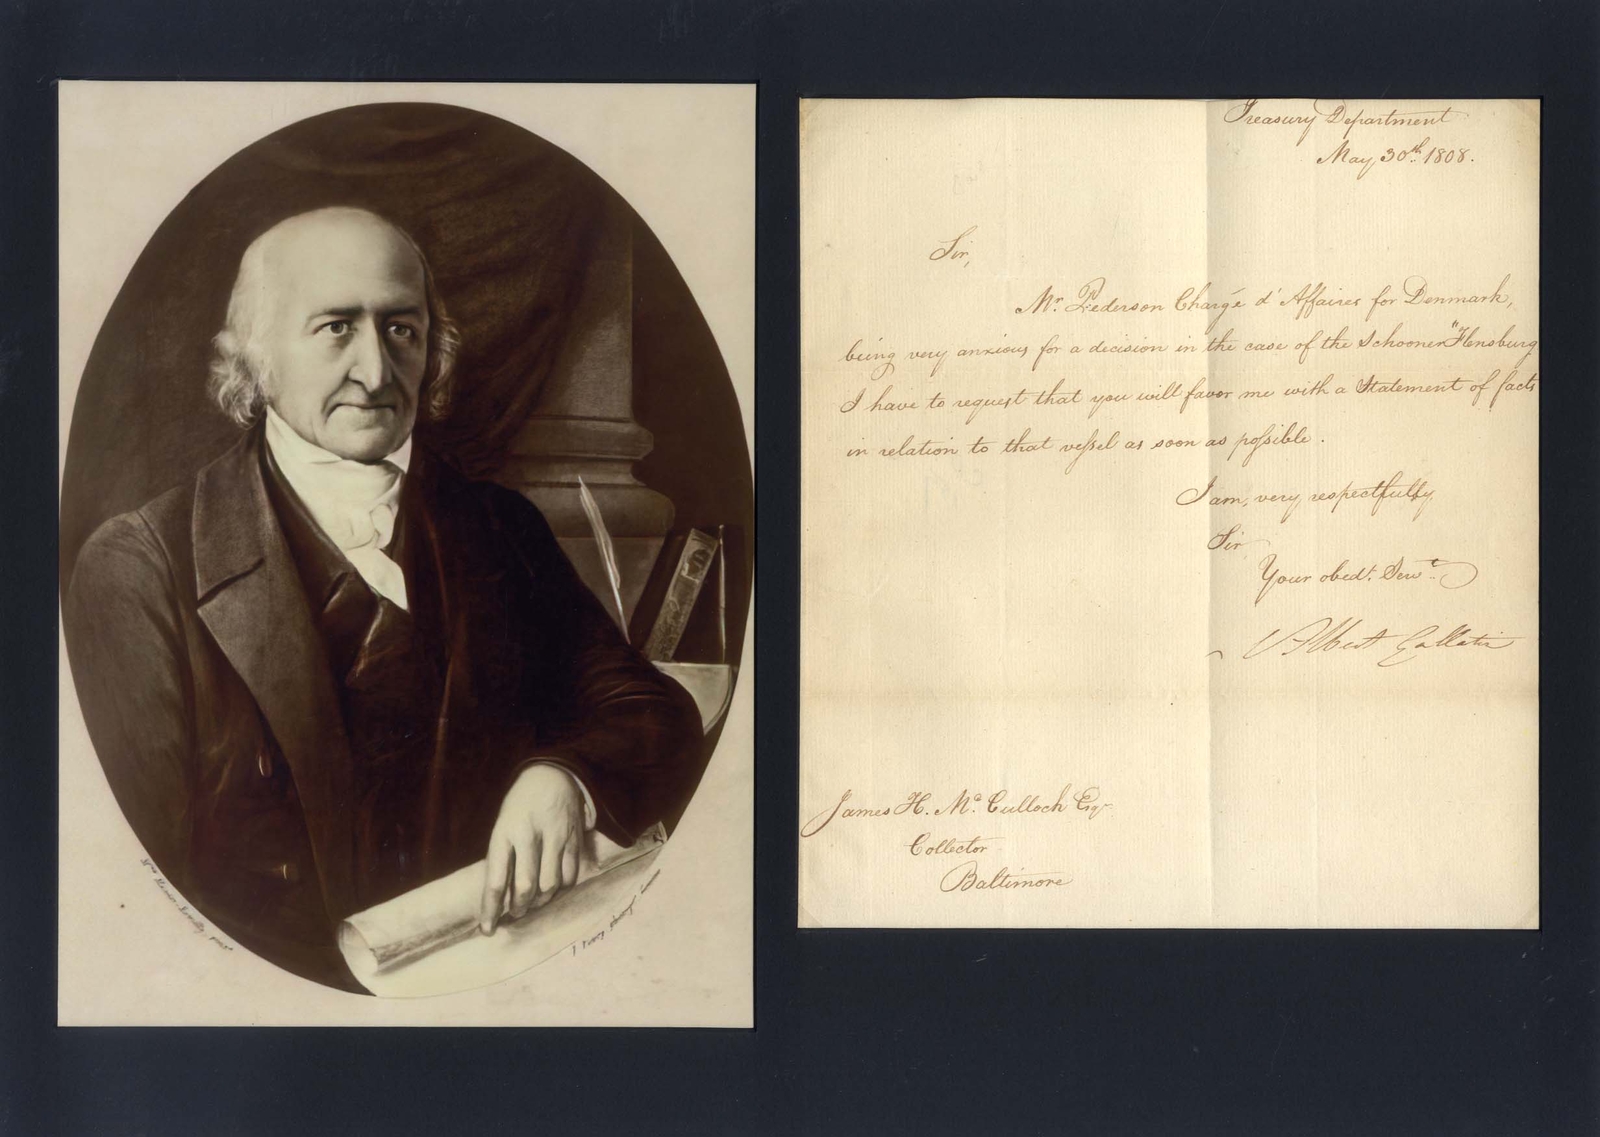 Treasury Department
May 30th. 1808.
Sir,
Mr. Pederson Chargé d'Affaires for Denmark,
being very anxious for a decision in the case of the Schooner "Flensburg
I have to request that you will favor me with a Statement of facts
in relation to that vessel as soon as possible.
I am, very respectfully
Sir
Your obedt. Servt.
Albert Gallatin
James H. Mc. Culloch Esqr
Collector
Baltimore